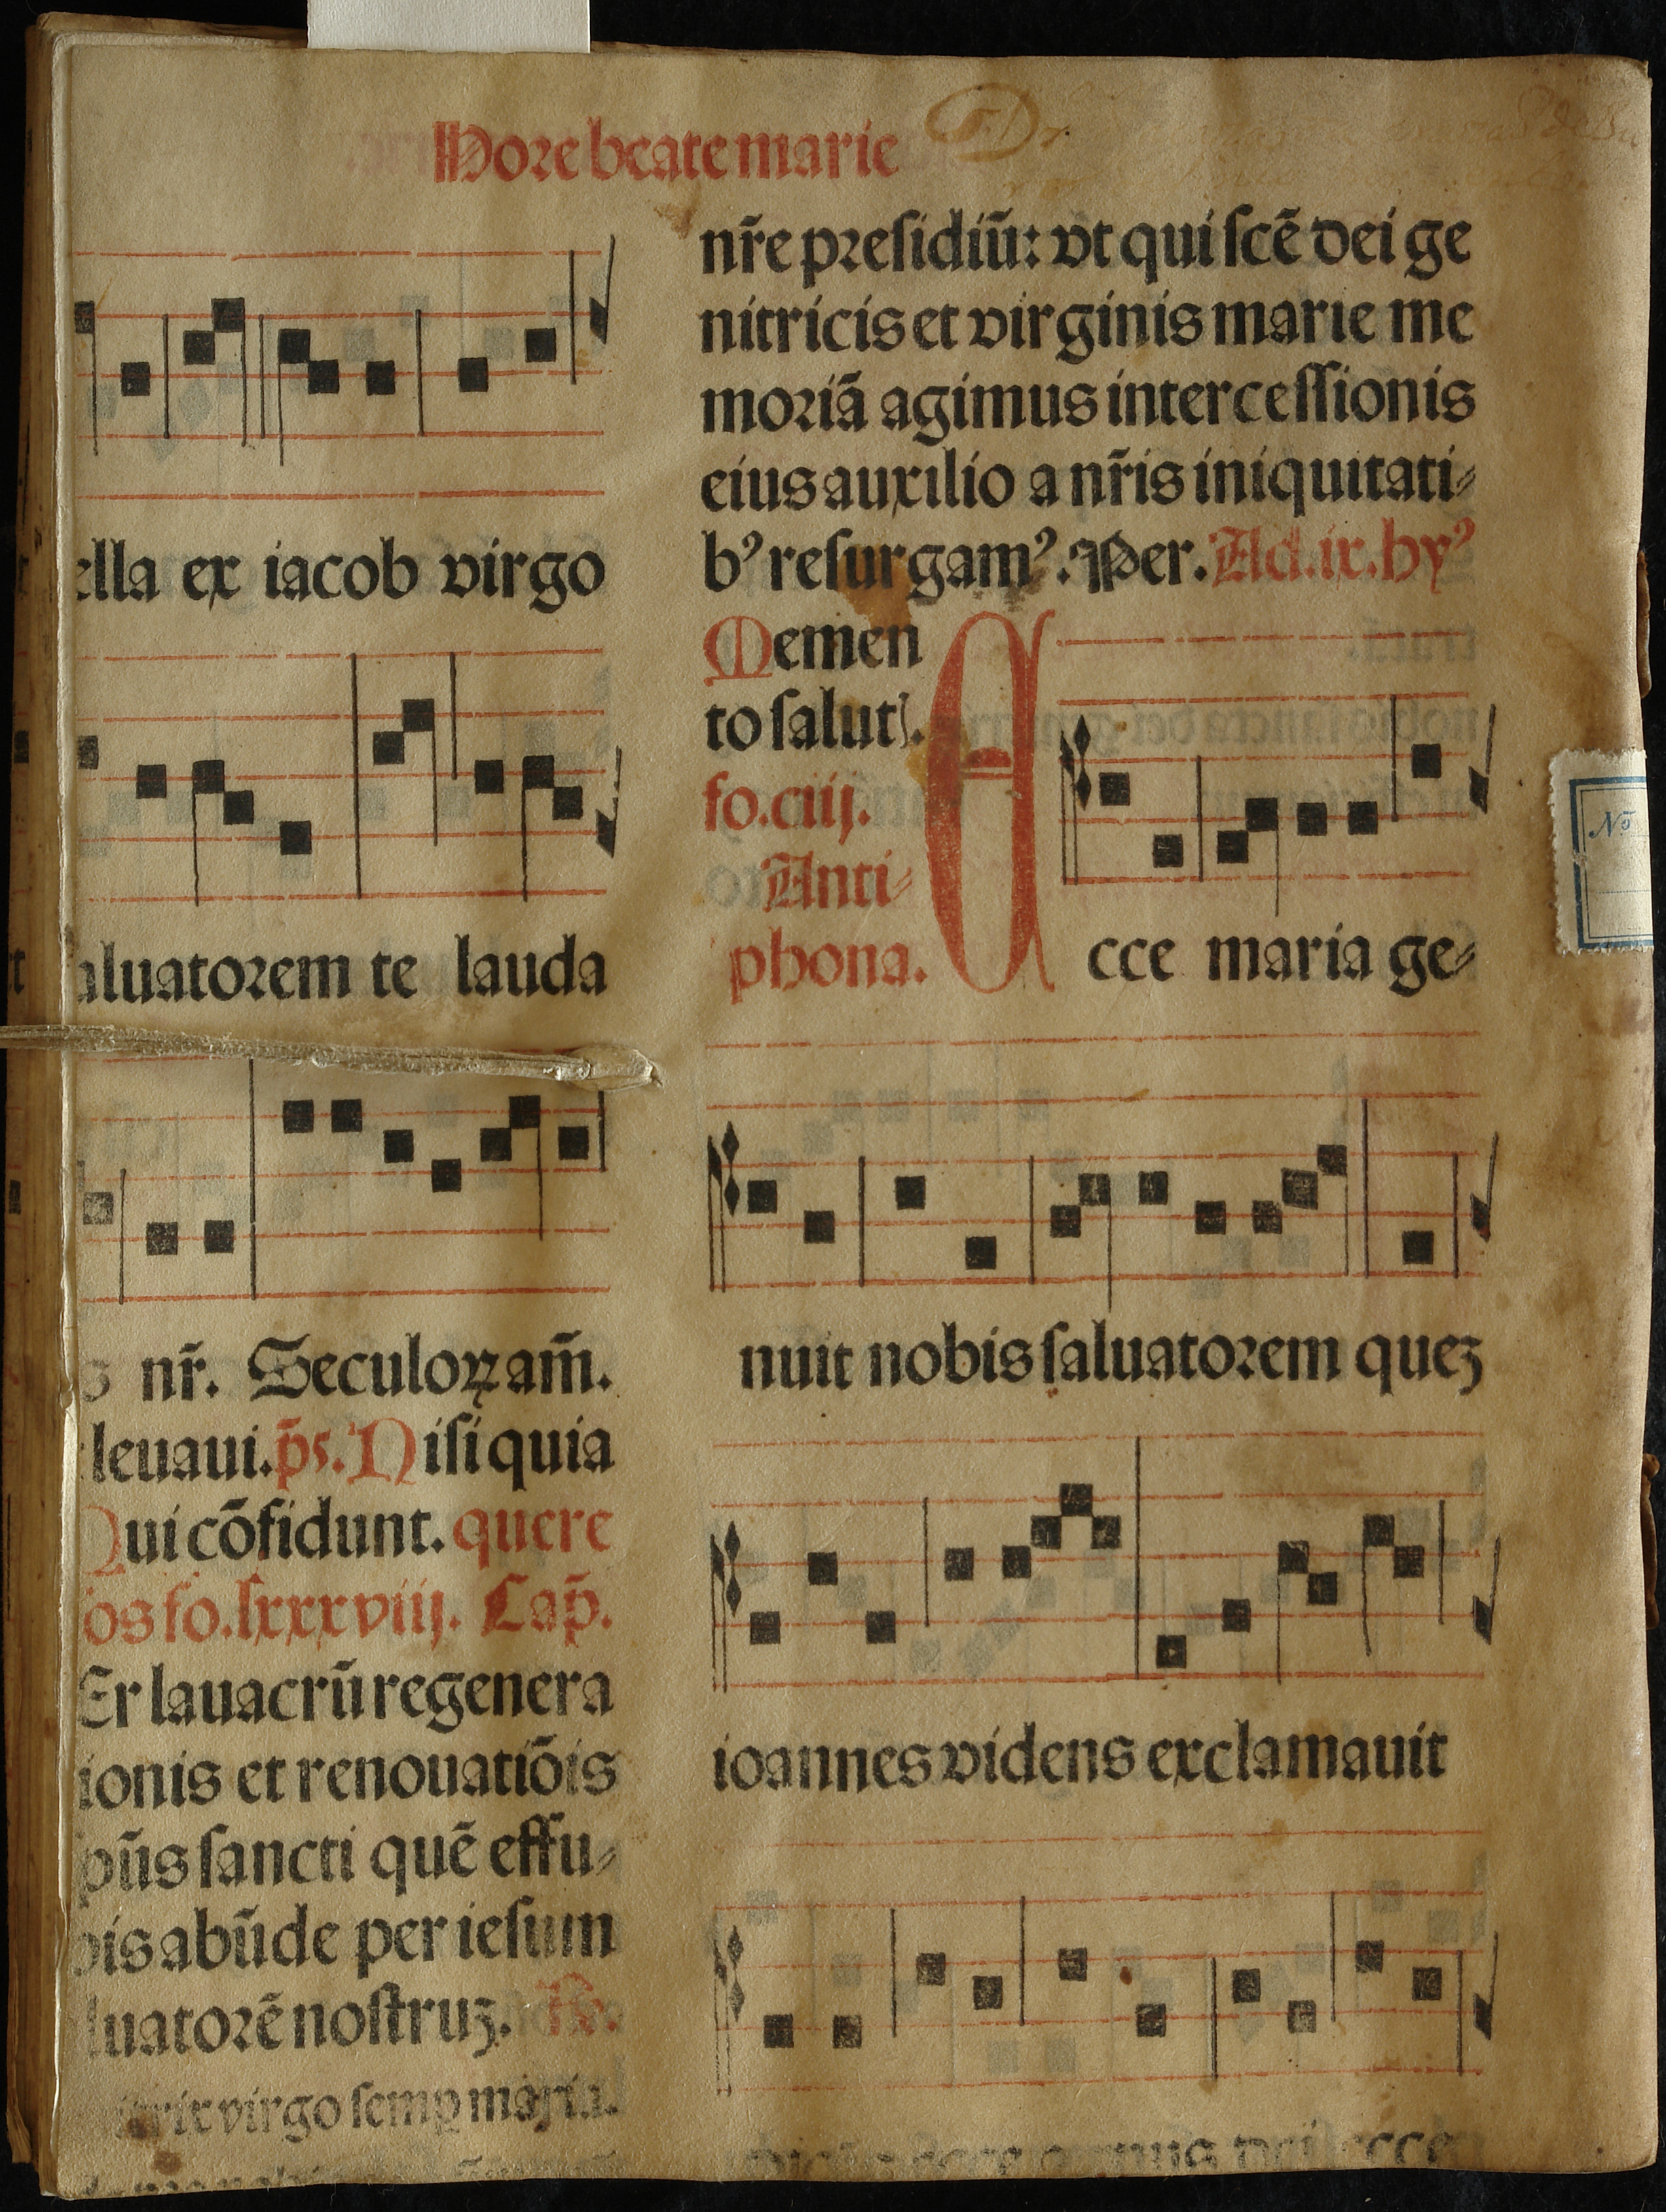 Hore beate marie
ella ex iacob virgo
aluatorem te lauda
nr̄. Seculoꝝ am̄.
leuaui. p̄s. Nisi quia
Qui cōfidunt. quere
os fo. lxxxviij. Cap̄.
Er lauacrū regenera
ionis et renouatiōis
sp̄ūs sancti quē effu⸗
bis abūde per iesum
luatorē nostruȝ. ꝶ.
virgo semp maria.
nr̄e presidiū: vt qui scē dei ge
nitricis et virginis marie me
moriā agimus intercessionis
eius auxilio a nr̄is iniquitati⸗
bꝰ resurgamꝰ. Per. Ad .ix. hyꝰ
Memen
to salutꝭ.
fo. ciiij.
Anti⸗
phona.
Ecce maria ge⸗
nuit nobis saluatorem queȝ
ioannes videns exclamauit
ecce